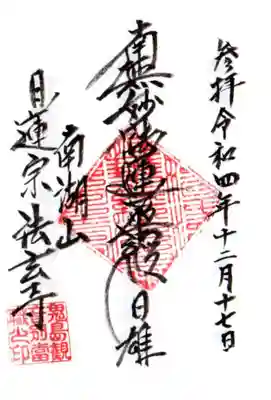 参拝令和四年十二月十七日
南無妙法蓮華経
南湖山
日蓮宗法玄寺
鬼島観